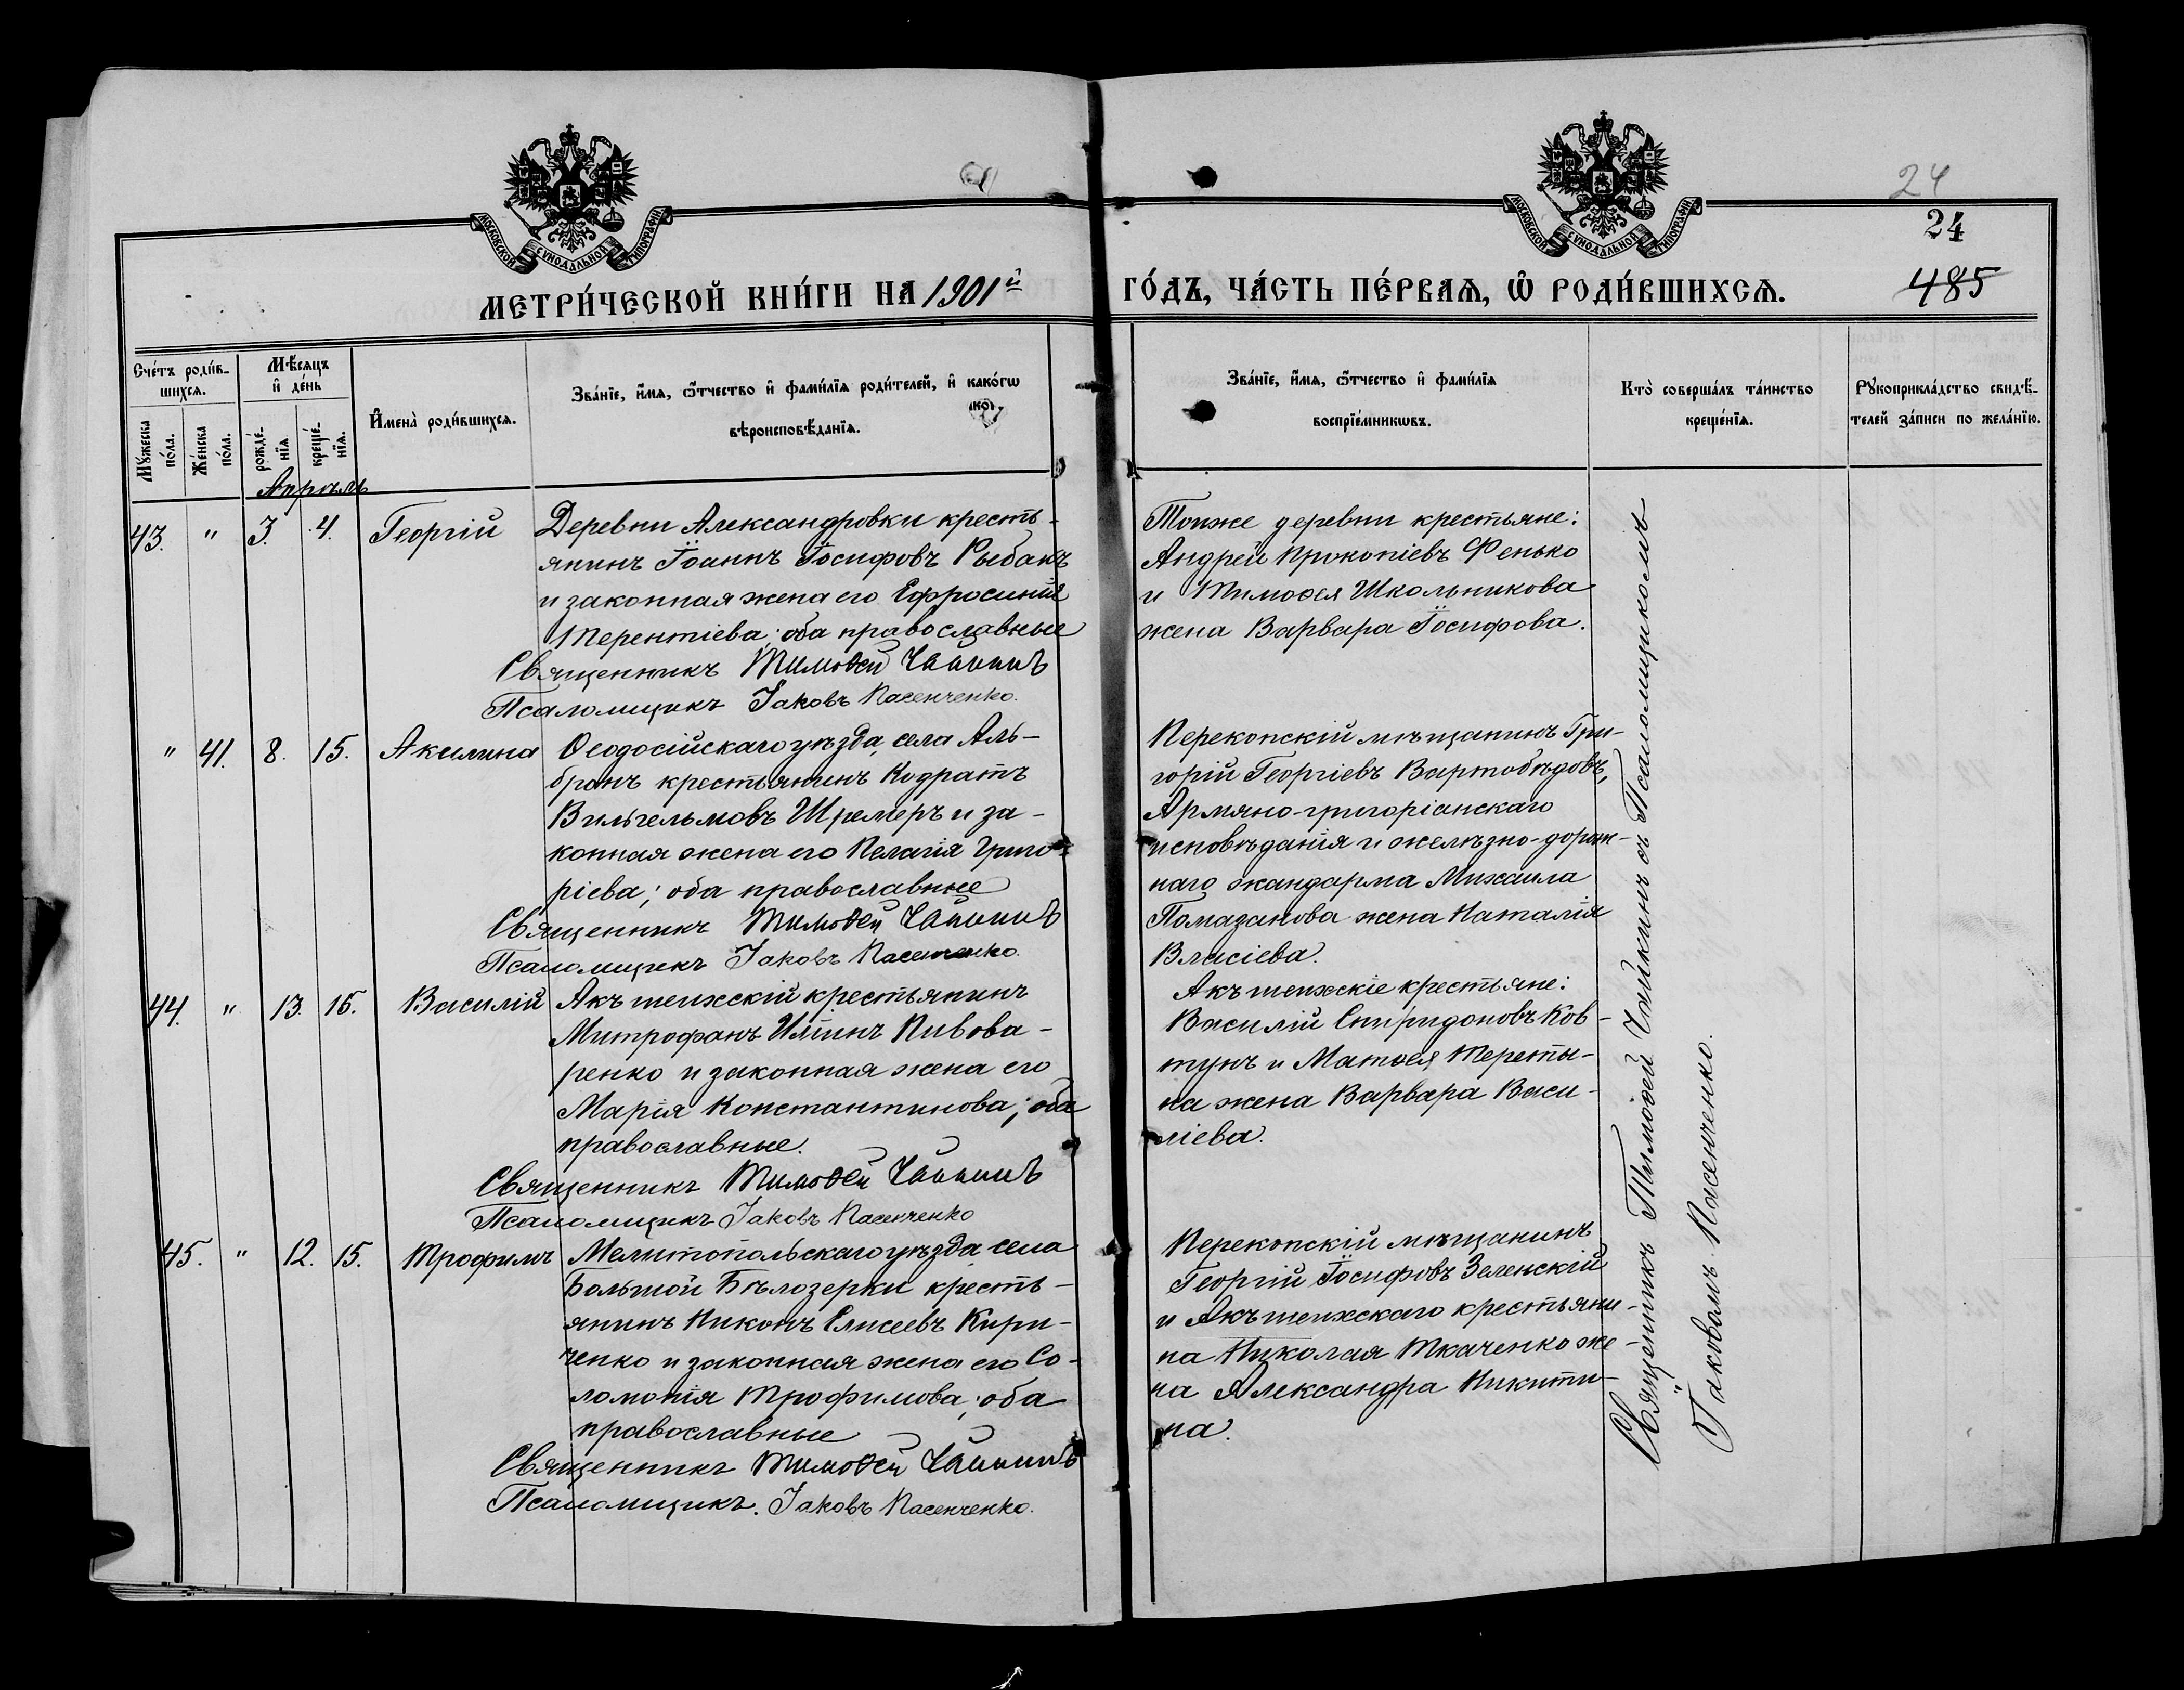 24
24
485
МОСКОВСКОЙ СѴНОДАЛЬНОЙ ТИПОГРАФІИ
МОСКОВСКОЙ СѴНОДАЛЬНОЙ ТИПОГРАФІИ
МЕТРИ́ЧЕСКОЙ КНИ́ГИ НА 1901й ГО́ДЪ, ЧА́СТЬ ПЕ́РВАѦ, Ѡ РОДИ́ВШИХСѦ.
Сче́тъ роди́в-
шихсѧ.
Мѣ́сѧцъ
и̂ де́нь
Му́жеска
по́ла.
Же́нска
по́ла.
рожде́-
нїѧ
креще́-
нїѧ.
И̂мена̀ роди́вшихсѧ.
Зва́нїе, и́мѧ, ѻ́тчество и̂ фами́лїѧ роди́телей, и̂ како́гѡ
вѣроисповѣ́данїѧ.
Зва́нїе, и́мѧ, ѻ́тчество и̂ фами́лїѧ
воспрїе́мникѡвъ.
Кто̀ соверша́лъ та́инство
креще́нїѧ.
Рꙋкоприкла́дство свидѣ́-
телей за́писи по жела́нїю.
Апрѣль
43. " 3. 4. Георгій
Деревни Александровки кресть-
янинъ Іоаннъ Іосифовъ Рыбакъ
и законная жена его Ефросинія
Терентіева; оба православные
Священникъ Тимоѳей Чайкинъ
Псаломщикъ Іаковъ Пасенченко.
Тоиже деревни крестьяне:
Андрей Прокопіевъ Фенько
и Тимоѳея Школьникова
жена Варвара Іосифова.
" 41. 8. 15. Акилина
Ѳеодосійскаго уѣзда, села Аль-
бранъ крестьянинъ Кодратъ
Вильгельмовъ Шремеръ и за-
конная жена его Пелагія Григо-
ріева; оба православные
Священникъ Тимоѳей Чайкинъ
Псаломщикъ Іаковъ Пасенченко.
Перекопскій мѣщанинъ Гри-
горій Георгіевъ Вартобѣдовъ,
Армяно-григоріанскаго
исповѣданія и желѣзно-дорож-
наго жандарма Михаила
Помазанова жена Наталія
Власіева.
44. " 13. 15. Василій
Акъшеихскій крестьянинъ
Митрофанъ Иліинъ Пивова-
ренко и законная жена его
Марія Константинова; оба
православные.
Священникъ Тимоѳей Чайкинъ
Псаломщикъ Іаковъ Пасенченко
Акъшеихскіе крестьяне:
Василій Спиридоновъ Ков-
тунъ и Матѳея Тереты-
на жена Варвара Васи-
ліева.
45. " 12. 15. Трофимъ
Мелитопольскаго уѣзда, села
Большой Бѣлозерки кресть-
янинъ Никонъ Елисеевъ Кири-
ченко и законная жена его Со-
ломонія Трофимова; оба
православные
Священникъ Тимоѳей Чайкинъ
Псаломщикъ. Іаковъ Пасенченко.
Перекопскій мѣщанинъ
Георгій Іосифовъ Зеленскій
и Акъшеихскаго крестьяни-
на Николая Ткаченко же-
на Александра Никити-
на.
Священникъ Тимоѳей Чайкинъ съ Псаломщикомъ
Іаковомъ Пасенченко.